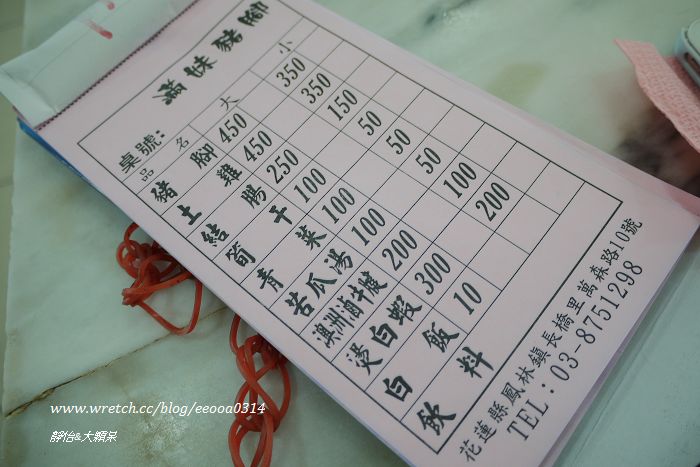 滿味豬腳
桌號:
品名 大 小
豬腳 450 350
土雞 450 350
結腸 250 150
筍干 100 50
青菜 100 50
苦瓜湯 100 50
澳洲滷牛腱 200 100
燙白蝦 300 200
白飯 10
飲料
花蓮縣鳳林鎮長橋里萬森路10號
TEL:03-8751298
www.wretch.cc/blog/eeooa0314
靜怡&大顆呆